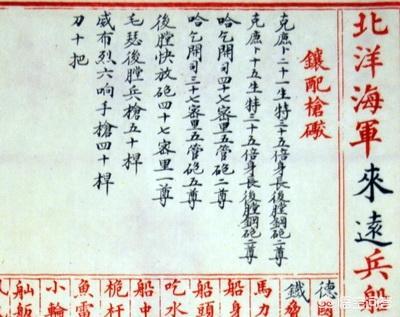 北洋海軍來遠兵船
鑲配槍礮
克鹿卜二十一生特三十五倍身長後膛鋼砲二尊
克鹿卜十五生特三十五倍身長後膛鋼砲二尊
哈乞開司四十七密里五管砲二尊
哈乞開司三十七密里五管砲五尊
後膛快放砲四十七密里一尊
毛瑟後膛兵槍五十桿
威布烈六响手槍四十桿
刀十把
德國
鐵
馬力
船身
船頭
吃水
船中
桅杆
魚雷
小輪
舢舨